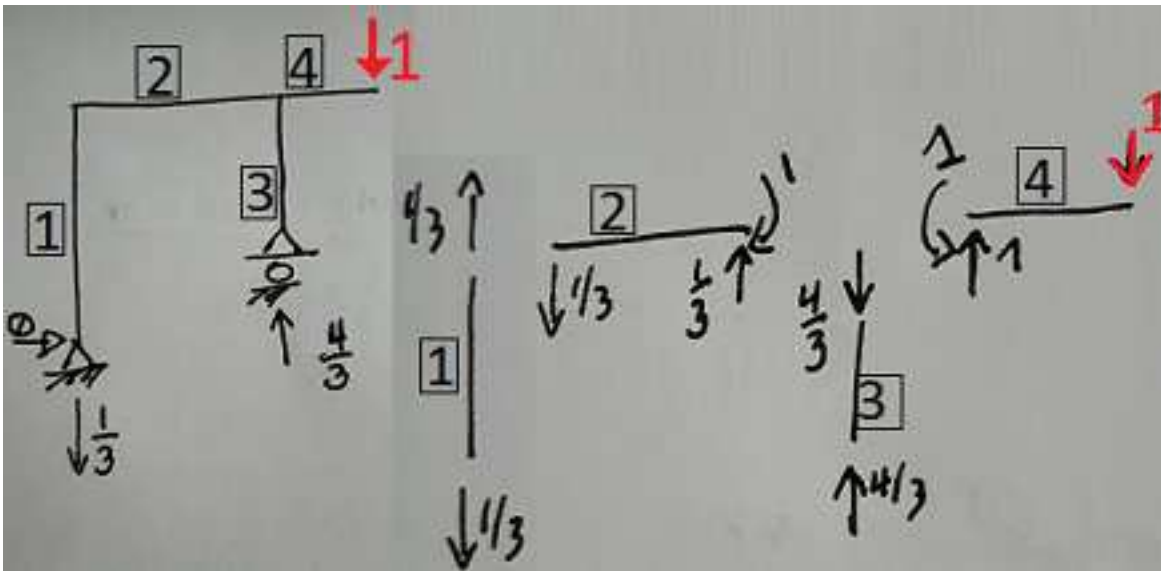 2
4
1
3
1
0
1/3
4/3
1/3
1
1/3
2
1
1/3
1/3
4/3
3
4/3
1
4
1
1